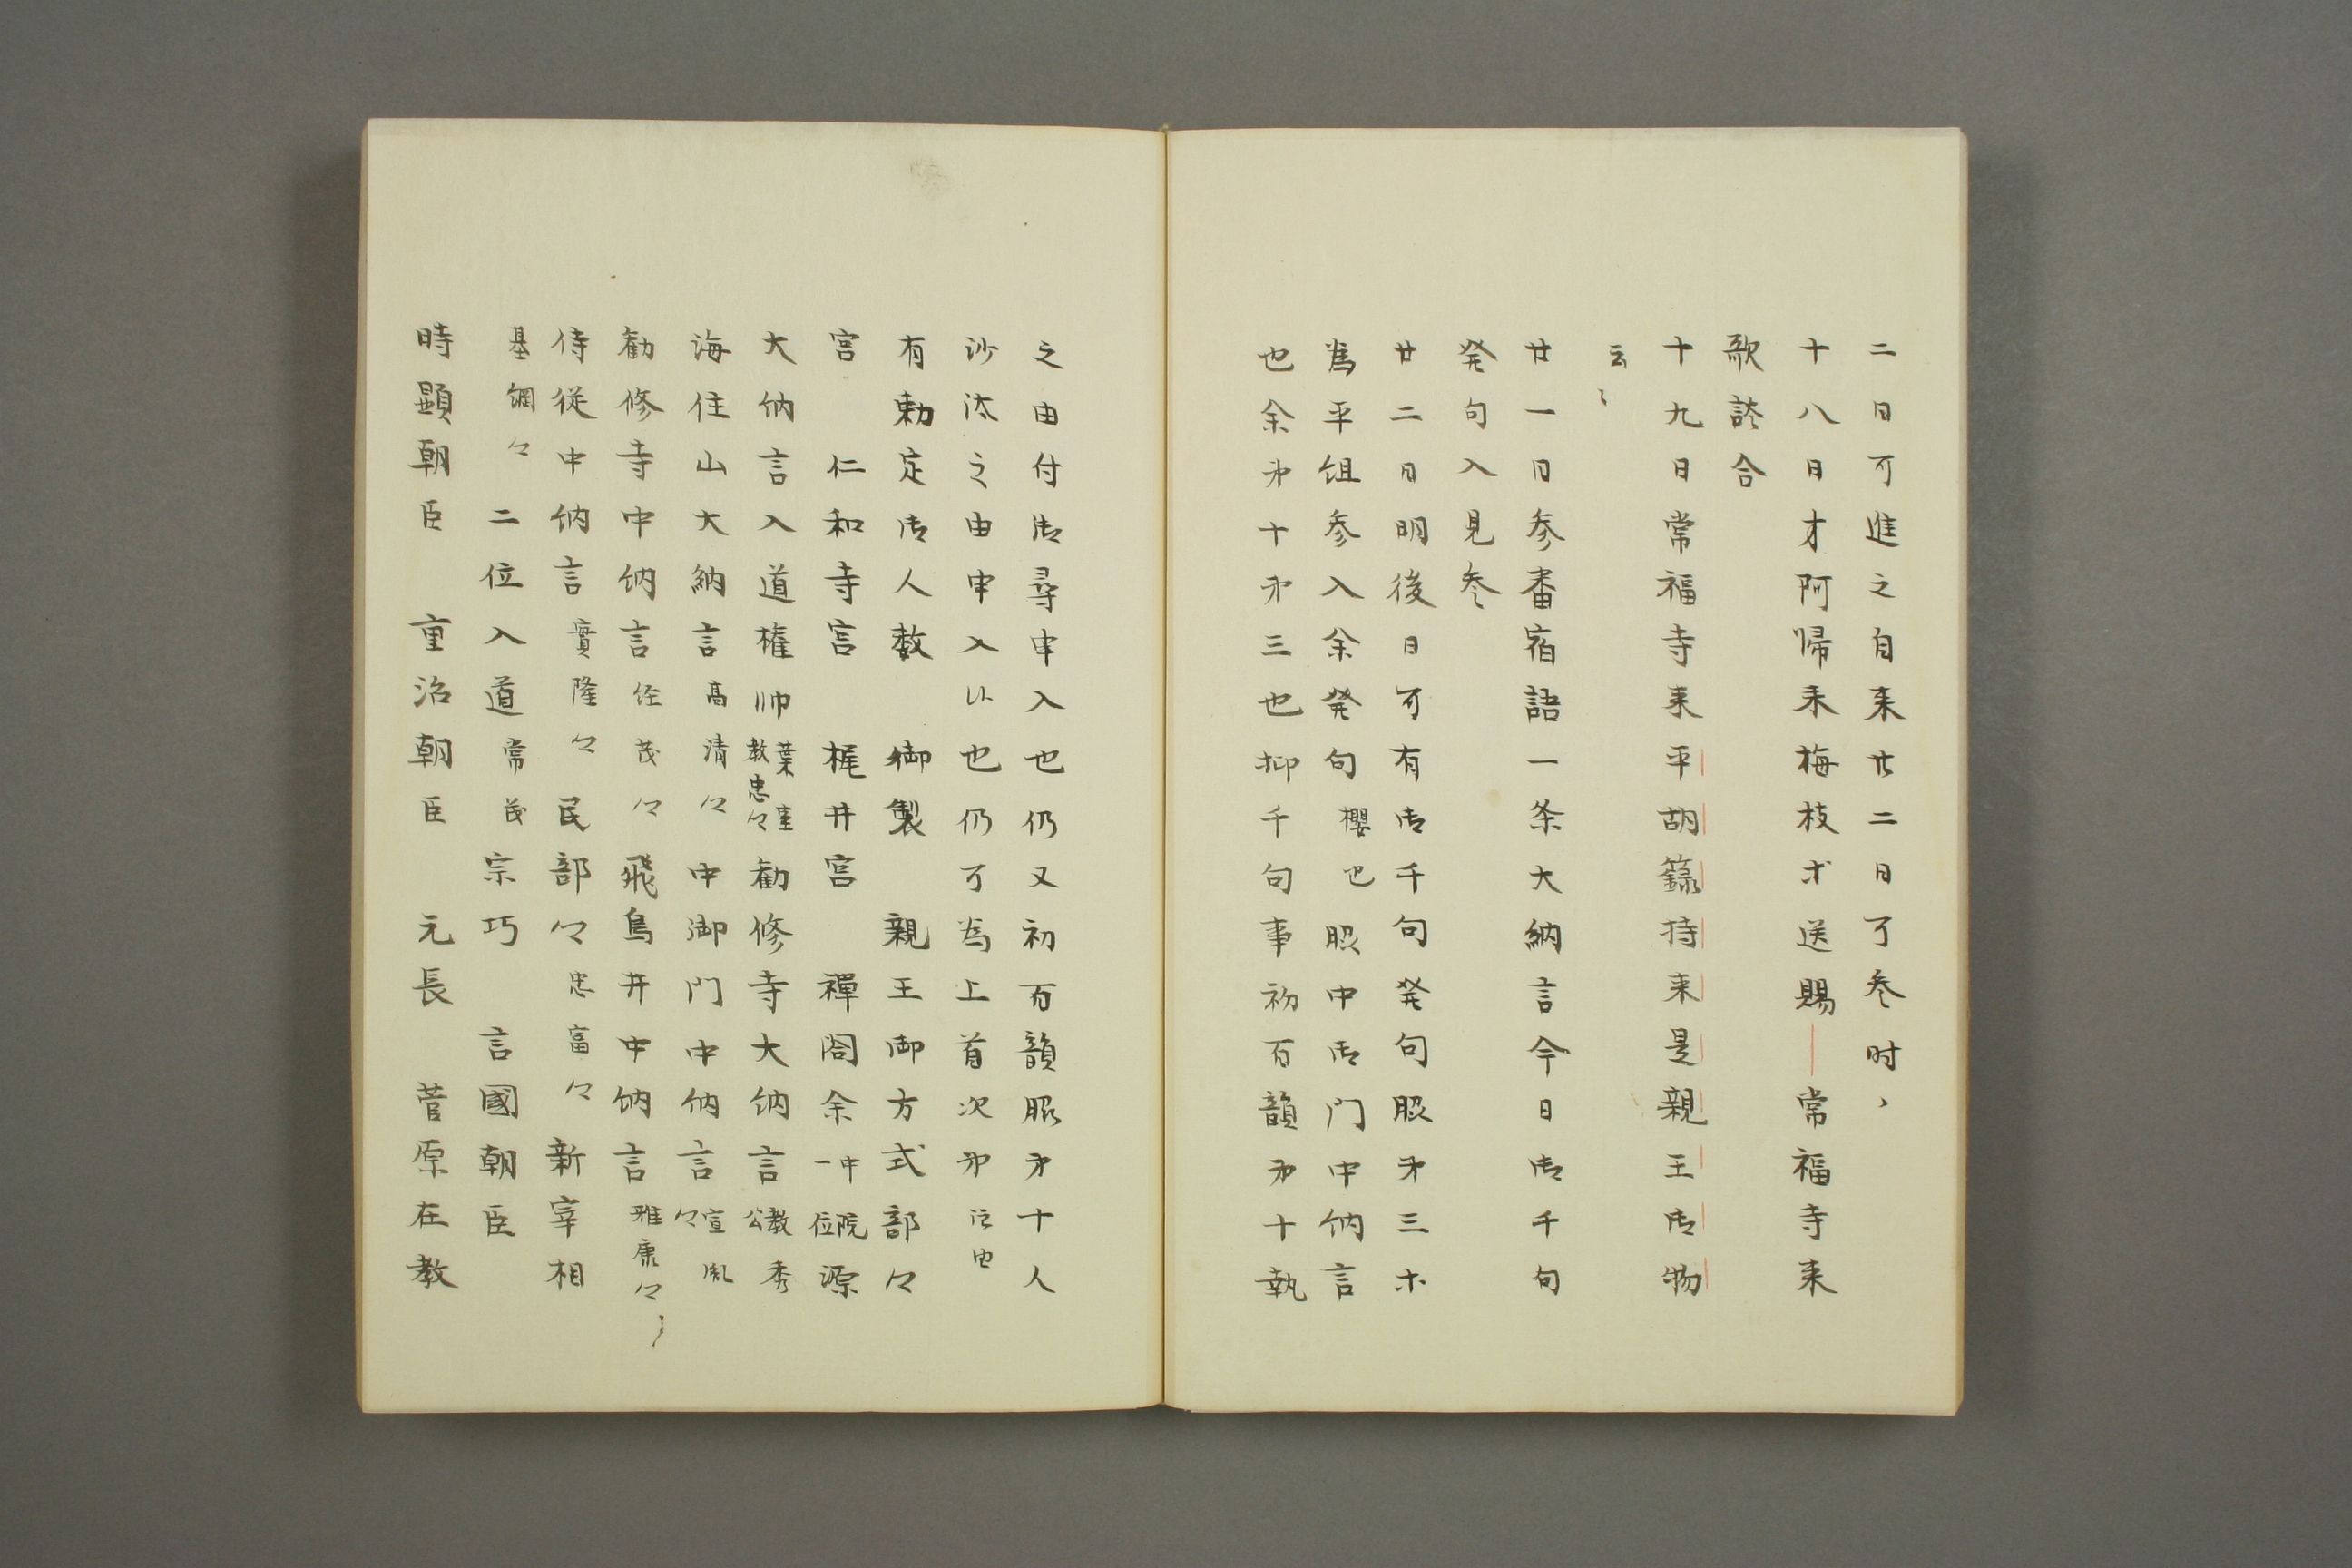 二日可進之自来廿二日可参时、
十八日才阿帰来梅枝才送賜｜常福寺来
歌談合
十九日常福寺来平胡籙持来是親王御物
云々
廿一日参番宿語一条大納言今日御千句
発句入見参
廿二日明後日可有御千句発句脇第三ホ
為平組参入余発句櫻也脇中御门中納言
也余第十第三也抑千句事初百韻第十執
之由付御尋申入也仍又初百韻脇第十人
沙汰之由申入以也仍可為上首次第注也
有勅定御人数　御製　親王御方式部々
宮　仁和寺宮　梶井宮　禅閤余一位中院源
大納言入道権帥葉室教忠々勧修寺大納言教秀公
海住山大納言高清々　中御門中納言宣胤々
勧修寺中納言経茂々　飛鳥井中納言雅康々
侍従中納言實隆々　民部々忠富々　新宰相
基綱々　二位入道常茂宗巧　言國朝臣
時顕朝臣　重治朝臣　元長　菅原在数